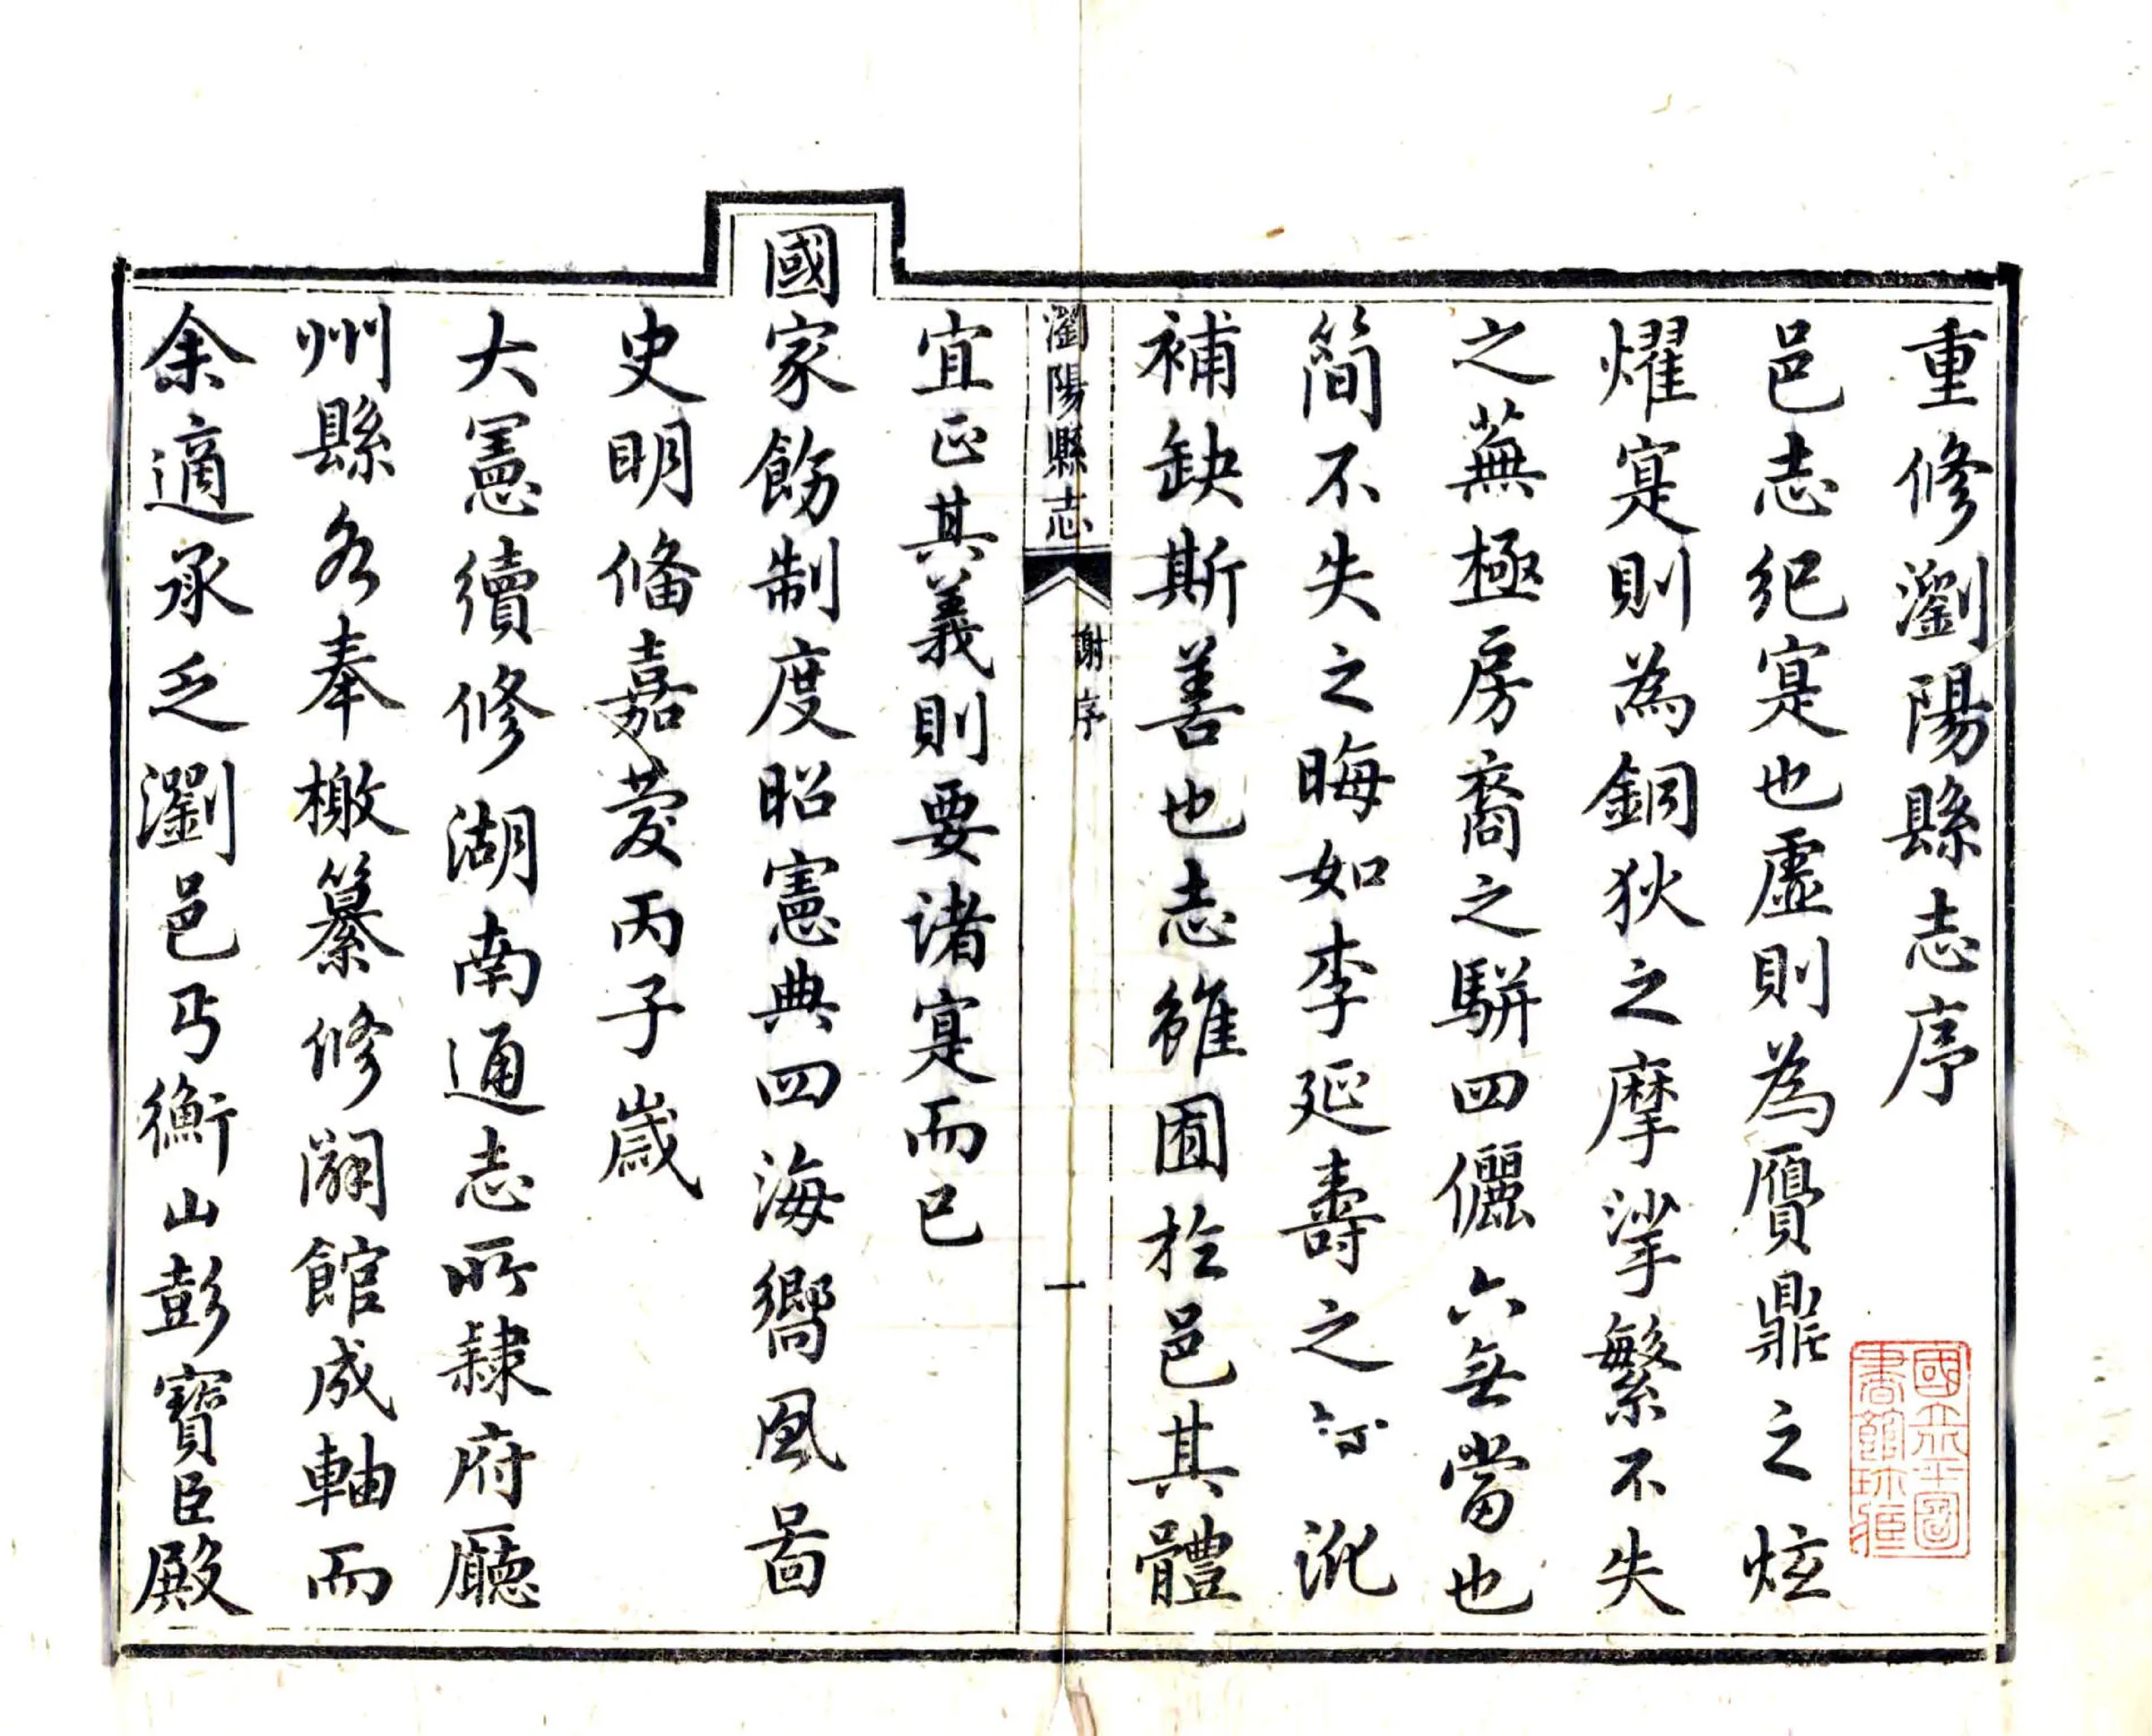 重修瀏陽縣志序
邑志紀寔也虛則為贗鼎之炫
燿寔則為銅狄之摩挲繁不失
之蕪極房裔之駢四儷六無當也
簡不失之晦如李延壽之 沘
補缺斯善也志雖囿於邑其體
瀏陽縣志
謝序
一
宜正其義則要诸寔而已
國家飭制度昭憲典四海嚮風啚
史明俻嘉慶丙子歲
大憲續修湖南通志所隸府廳
州縣各奉檄纂修闢館成軸而
余適承乏瀏邑丐衡山彭寶臣殿
國立北平圖
書館珍藏